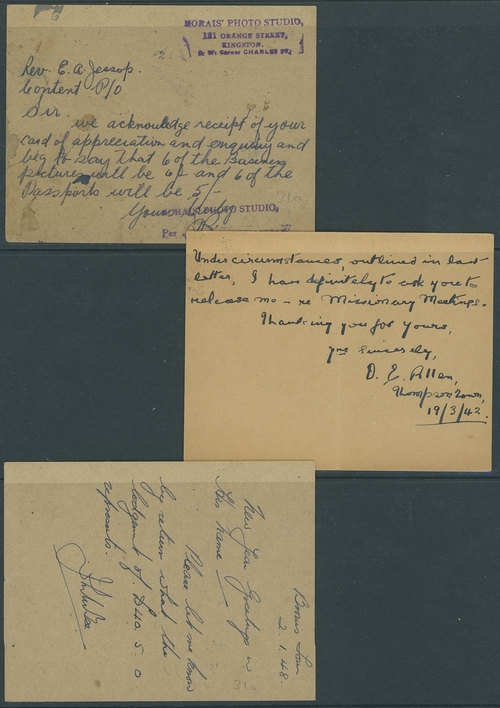 MORAIS' PHOTO STUDIO,
121 ORANGE STREET,
KINGSTON.
Rev. E. A. Jessop.
Content P/O
Sir
we acknowledge receipt of your
card of appreciation and enquiry and
beg to say that 6 of the
pictures will be 6/- and 6 of the
Passports will be 5/-
Yours
MORAIS' PHOTO STUDIO,
Per
31a
Under circumstances, outlined in last
letter, I have definitely to ask you to
release me - re Missionary Meetings.
Thanking you for yours,
yrs sincerely,
D. E. Allen,
Thompson Town,
19/3/42.
2.1.48.
New Year Greetings in
His name
Please let me know
by return what the
lodgment of £40. 5. 0
represents.
31a